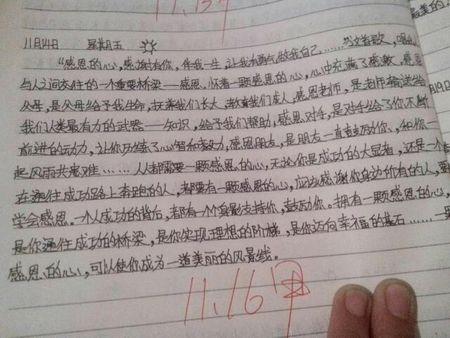 11.13阅
11月14日 星期五
"感恩的心,感谢有你,伴我一生,让我有勇气做我自己……这首歌,唱出
与人之间交往的一个重要桥梁——感恩。怀着一颗感恩的心,心中充满了感激,感恩
父母,是父母给予我生命,抚养我们长大,教育我们成人,感恩老师,是老师输送给
我们人类最有力的武器——知识,给予我们帮助,感恩对手,是对手给了你不断
前进的动力,让你历练了心智和毅力,感恩朋友,是朋友一直支励你,和你一
起风雨共患难……人人都需要一颗感恩的心,无论你是成功的大显者,还是一个
在通往成功路上奔跑的人,都要有一颗感恩的心,应该感谢你身边所有的人,要
学会感恩。一个人成功的背后,都有一个身影支持你,鼓励你。拥有一颗感恩的心,
是你通往成功的桥梁,是你实现理想的阶梯,是你迈向幸福的基石……一
感恩的心,可以使你成为一道美丽的风景线。
11.16阅